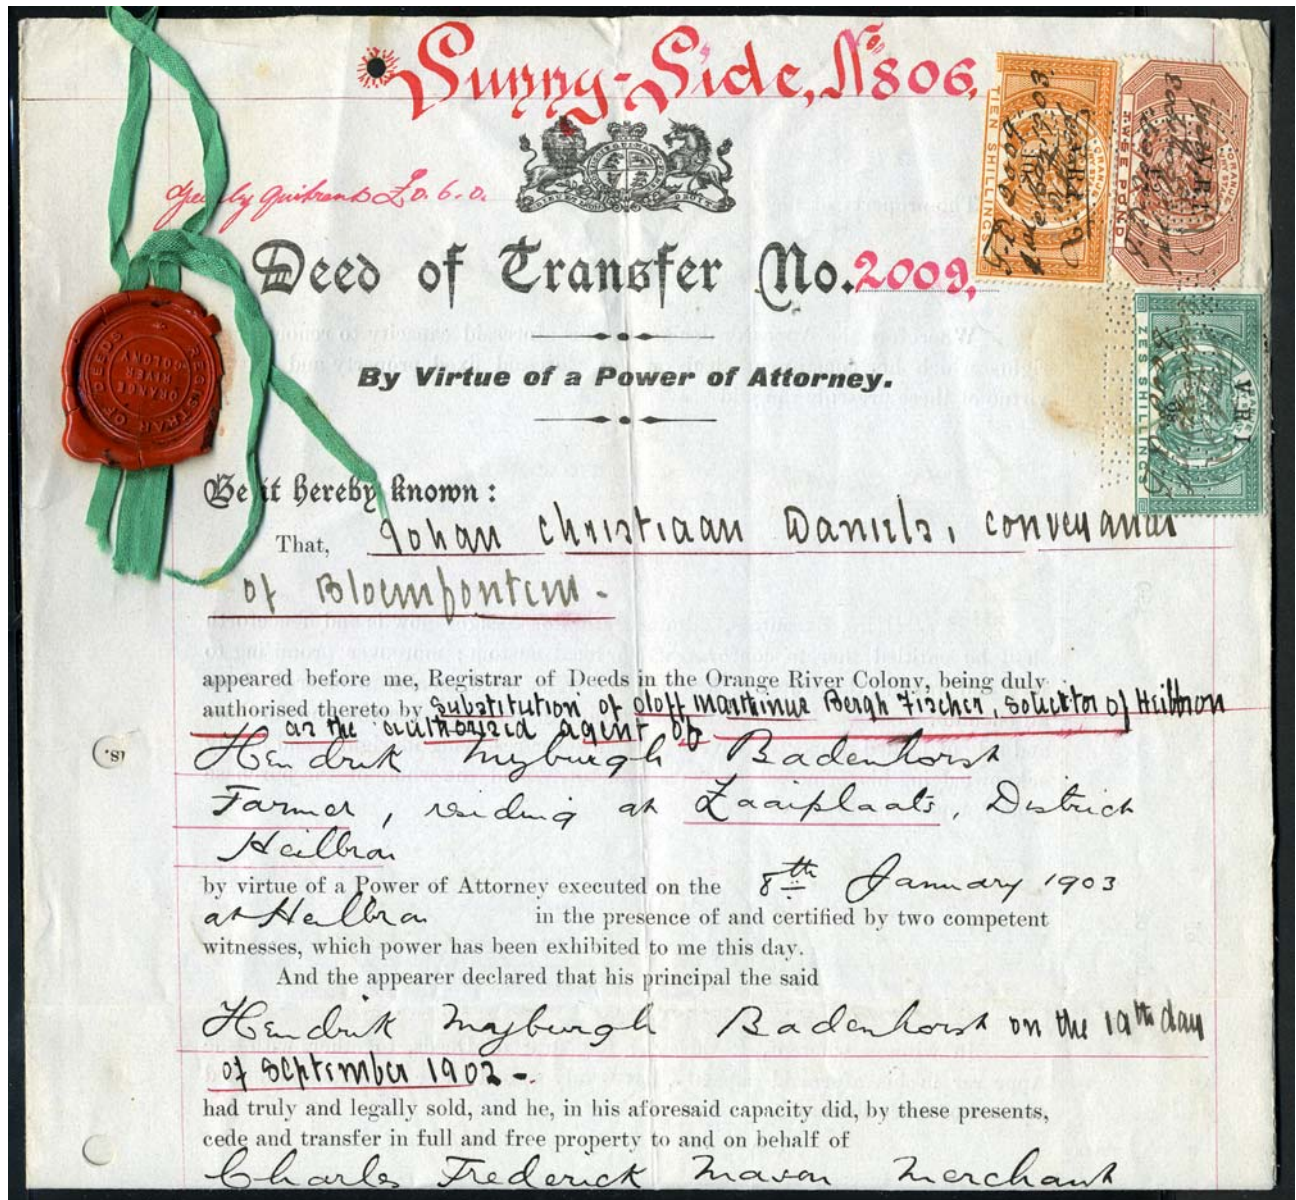 Sunny-Side, No 806.
Yearly Quitrent £0.6.0.
Deed of Transfer No. 2009,
By Virtue of a Power of Attorney.
Be it hereby known:
That, Johan Christiaan Daniels, conveyancer
of Bloemfontein -
appeared before me, Registrar of Deeds in the Orange River Colony, being duly
authorised thereto by substitution of Oloff Marthinus Bergh Fischer, solicitor of Heilbron
as the authorized agent of
Hendrik Myburgh Badenhorst
Farmer, residing at Zaaiplaats, District
Heilbron
by virtue of a Power of Attorney executed on the 8th January 1903
at Heilbron in the presence of and certified by two competent
witnesses, which power has been exhibited to me this day.
And the appearer declared that his principal the said
Hendrik Myburgh Badenhorst on the 10th day
of September 1902 -
had truly and legally sold, and he, in his aforesaid capacity did, by these presents,
cede and transfer in full and free property to and on behalf of
Charles Frederick Mason Merchant
REGISTRAR OF DEEDS
ORANGE
RIVER
COLONY
TIEN SHILLING
TWEE POND
ZES SHILLINGS
V.R.I.